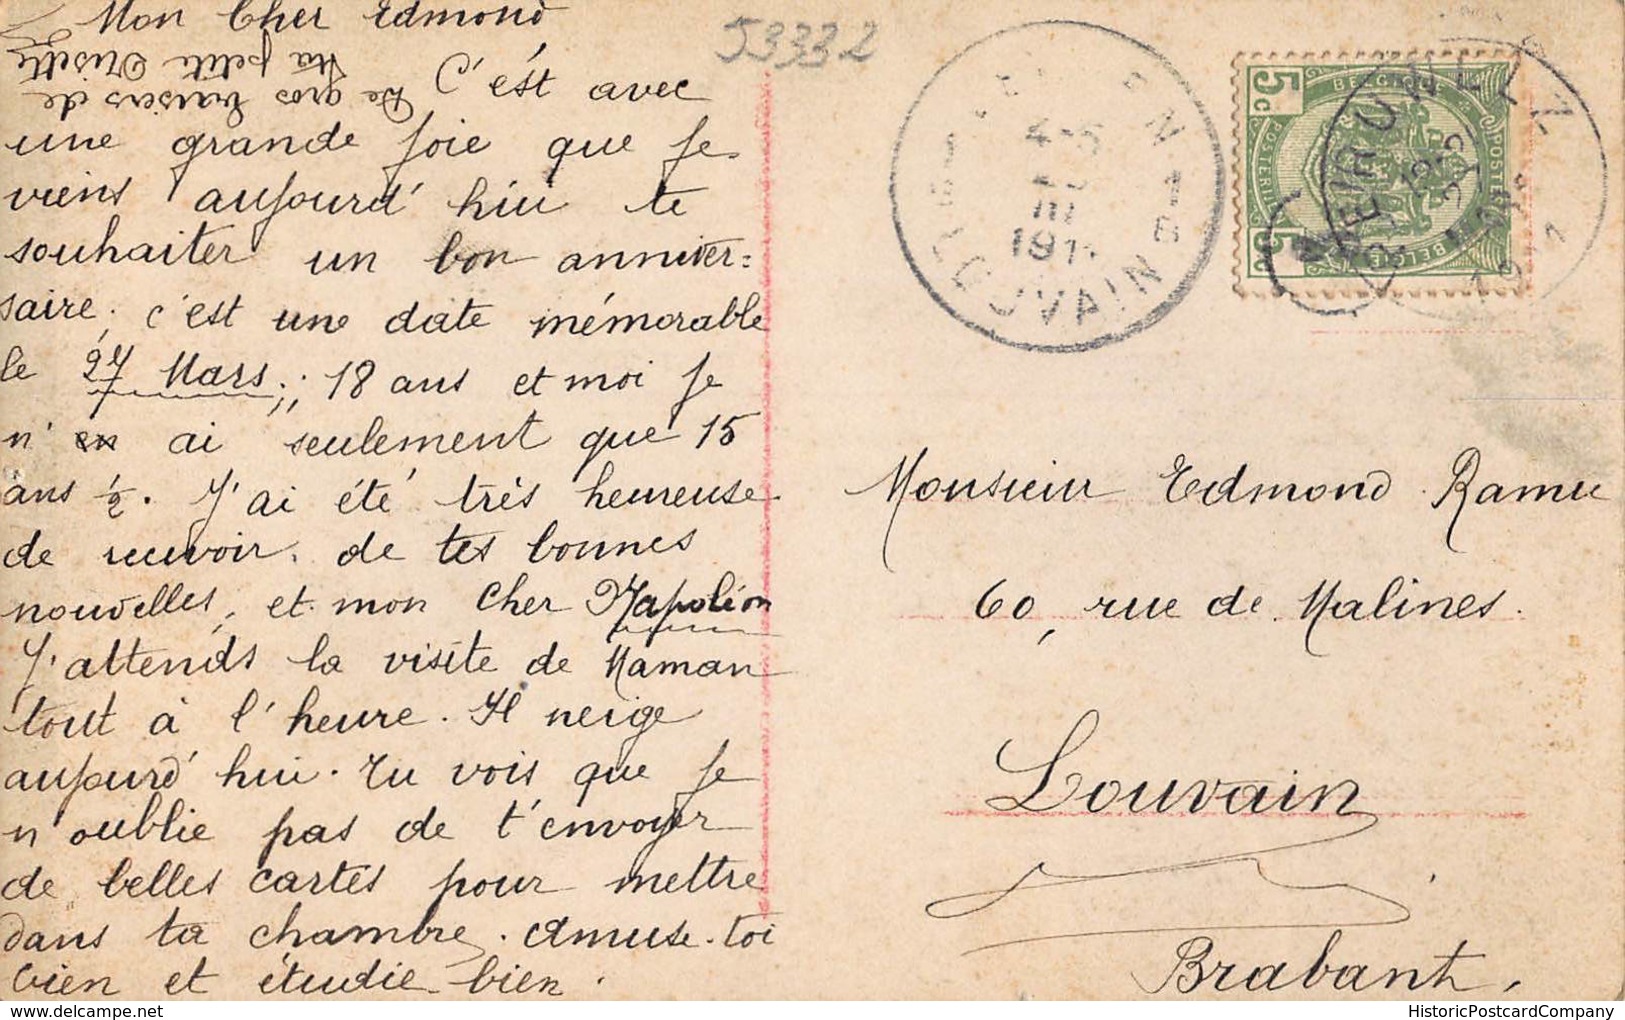 Mon Cher Edmond
C'ést avec
une grande joie que je
viens aujourd'hui te
souhaiter un bon anniver=
saire, c'est une date mémorable
le 27 Mars,; 18 ans et moi je
n'en ai seulement que 15
ans ½. J'ai été très heureuse
de recevoir. de tes bonnes
nouvelles, et mon Cher Napoléon
J'attends la visite de Maman
tout à l'heure. Il neige
aujourd'hui. Tu vois que je
n'oublie pas de t'envoyer
de belles cartes pour mettre
dans ta chambre. Amuse-toi
bien et étudie bien.
De gros baisers de
ta petite
53332
LOUVAIN
4-5
III
1 B
BELGIQUE
5c
5c
POSTERIJEN
POSTES
BELGIË
PERUWELZ
Monsieur Edmond Ramu
60, rue de Malines.
Louvain
Brabant,
delcampe.net
HistoricPostcardCompany